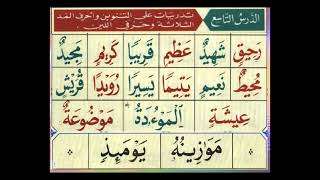 الدرس التاسع
تدريبات على التنوين وأحرف المد
الثلاثة وحرفي اللين.
رَحِيقٍ شَهِيدٌ عَظِيمٍ قَرِيبًا كَرِيمٍ مَجِيدٌ
مُحِيطٌ نَعِيمٍ يَتِيمًا يَسِيرًا رُوَيْدًا قُرَيْشٍ
عِيشَةٍ الْمَوْءُدَةُ مَوْضُوعَةٌ
مَوَازِينُهُ يَوْمَئِذٍ